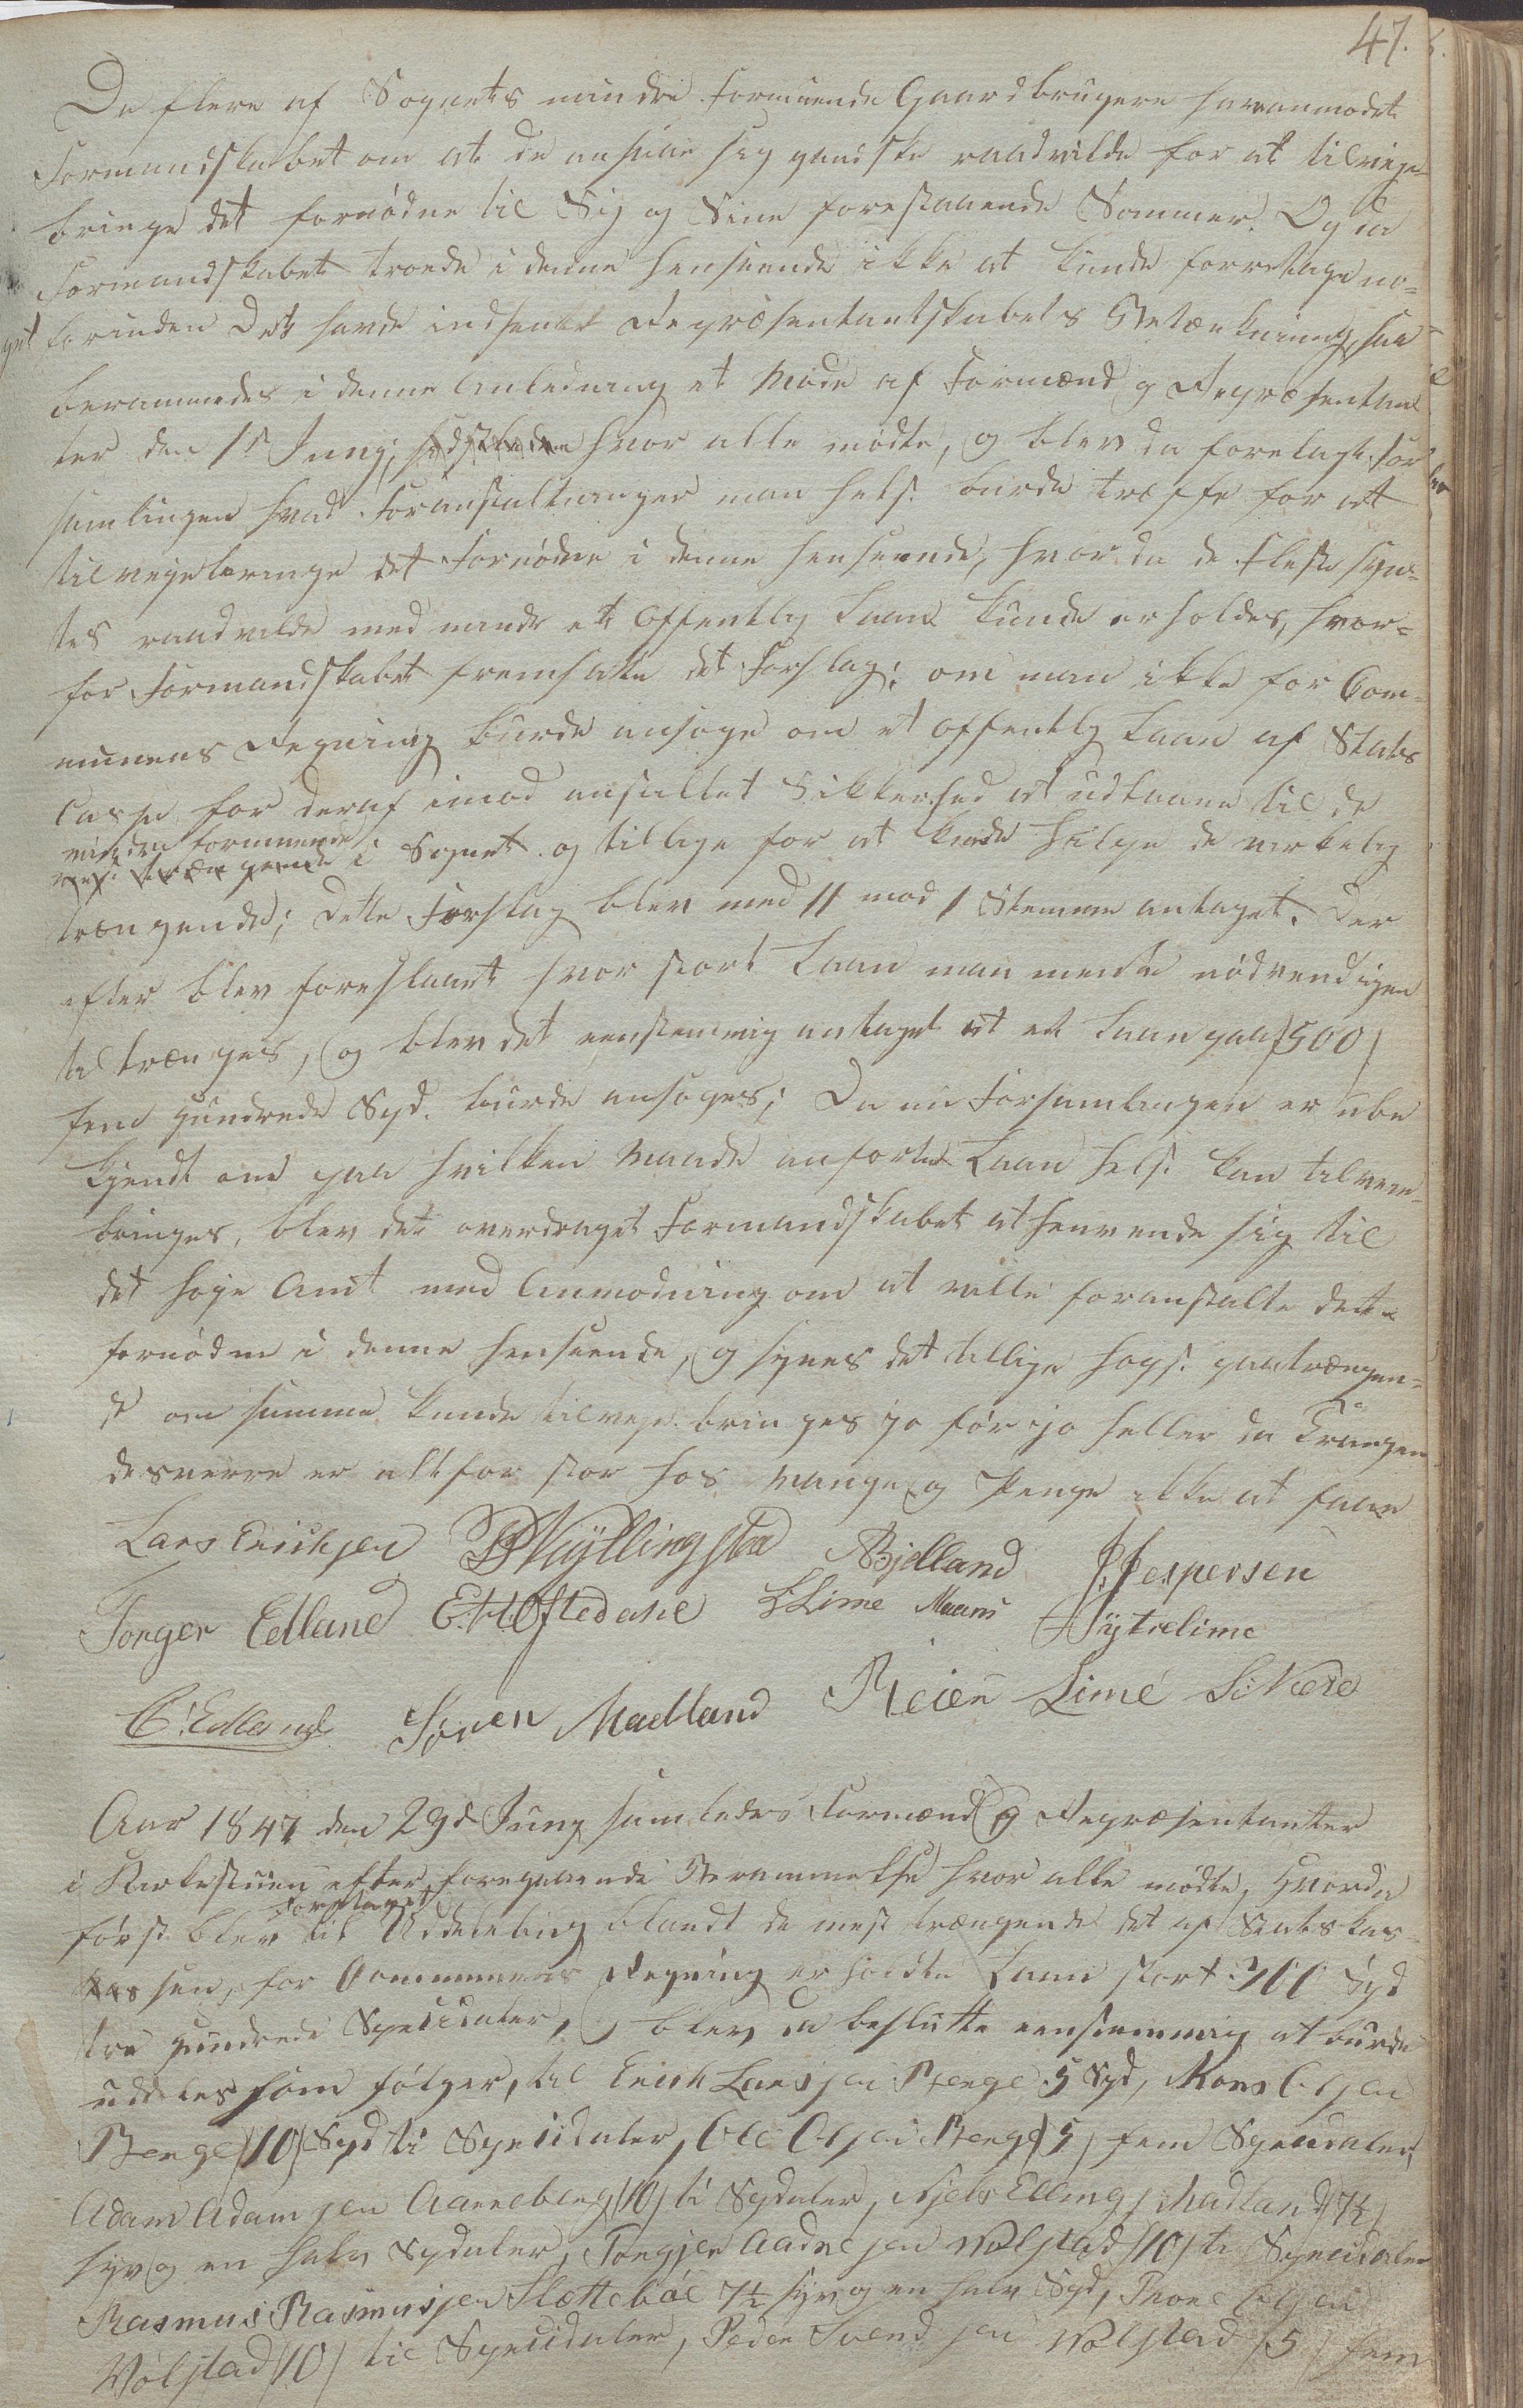 47.
Da flere af Sognets mindre formuende Gaardbrugere har anmodet
Formandskabet om at de ansaae sig gandske raadvilde for at tilveje-
bringe det fornødne til Sig og Sine forestaaende Sommer. Og da
Formandskabet troede i denne henseende ikke at kunde foretage no-
get forinden Det havde indhentet Repræsentantskabets Betænkning, saa
berammedes i denne Anledning et Møde af Formænd og Repræsentan
ter den 1st Juny, hvor alle mødte, og blev da forelagt For
samlingen hvad Foranstaltninger man helst burde træffe for at
tilvejebringe det Fornødne i denne henseende, hvor da de fleste syn-
tes raadvilde med mindre et Offentlig Laan kunde erholdes, hvor-
for Formandskabet fremsatte det Forslag; om man ikke for Com-
munens Regning burde ansøge om et offentlig Laan af Stats
Cassen for deraf imod anstillet Sikkerhed at udlaane til de
mindre formuende
mest trængende i Sognet og tillige for at kunde hielpe de virkelig
trængende; Dette Forslag blev med 11 mod 1 Stemme antaget. Der
efter blev foreslaaet hvor stort Laan man meente nødvendigen
tiltrænges, og blev det eenstemmig antaget at et Laan paa /500/
fem Hundrede Spd. burde ansøges; Da nu Forsamlingen er ube
kjendt om paa hvilken Maade anførte Laan helst kan tilveie-
bringes, blev det overdraget Formandskabet at henvende sig til
det høje Amt med Anmodning om at ville foranstalte dette
fornødne i denne henseende, og synes det tillige højst paatrængen-
de om samme kunde tilvejebringes jo før jo heller da Trangen
desverre er alt for stor hos Mange og Penge ikke at faae
Lars Erichsen Bjelland J. Jespersen
Torger Edland E. H. Oftedahl L Lime Maans Nytrelime
C. Edland Søren Madland Reier Lime
Aar 1847 den 29d Juny samledes Formænd og Repræsentanter
i Kirkestuen efter foregaaende Berammelse hvor alle mødte, Hvorda
foretaget
først blev til Uddeling blandt de mest trængende det af Statskas-
sen, for Communens Regning erholdte Laan stort 300 Spd
tre Hundrede Speciedaler, og blev da besluttet eenstemmig at burde
uddeles som følger, til Erich Larsen Berge 5 Spd, Mons Olsen
Berge /10/ Spd ti Speciedaler, Ole Olsen Berge /5/ fem Speciedaler,
Adam Adamsen Aaneberg /10/ ti Spdaler, Njels Ellings Madland /7½/
syv og en halv Spdaler, Torgjer Aadnesen Wølstad /10/ ti Speciedaler
Rasmus Rasmusen Slettebøe 7½ syv og en halv Spd, Thore Olsen
Wølstad /10/ tie Speciedaler, Peder Svendsen Wølstad /5/ fem